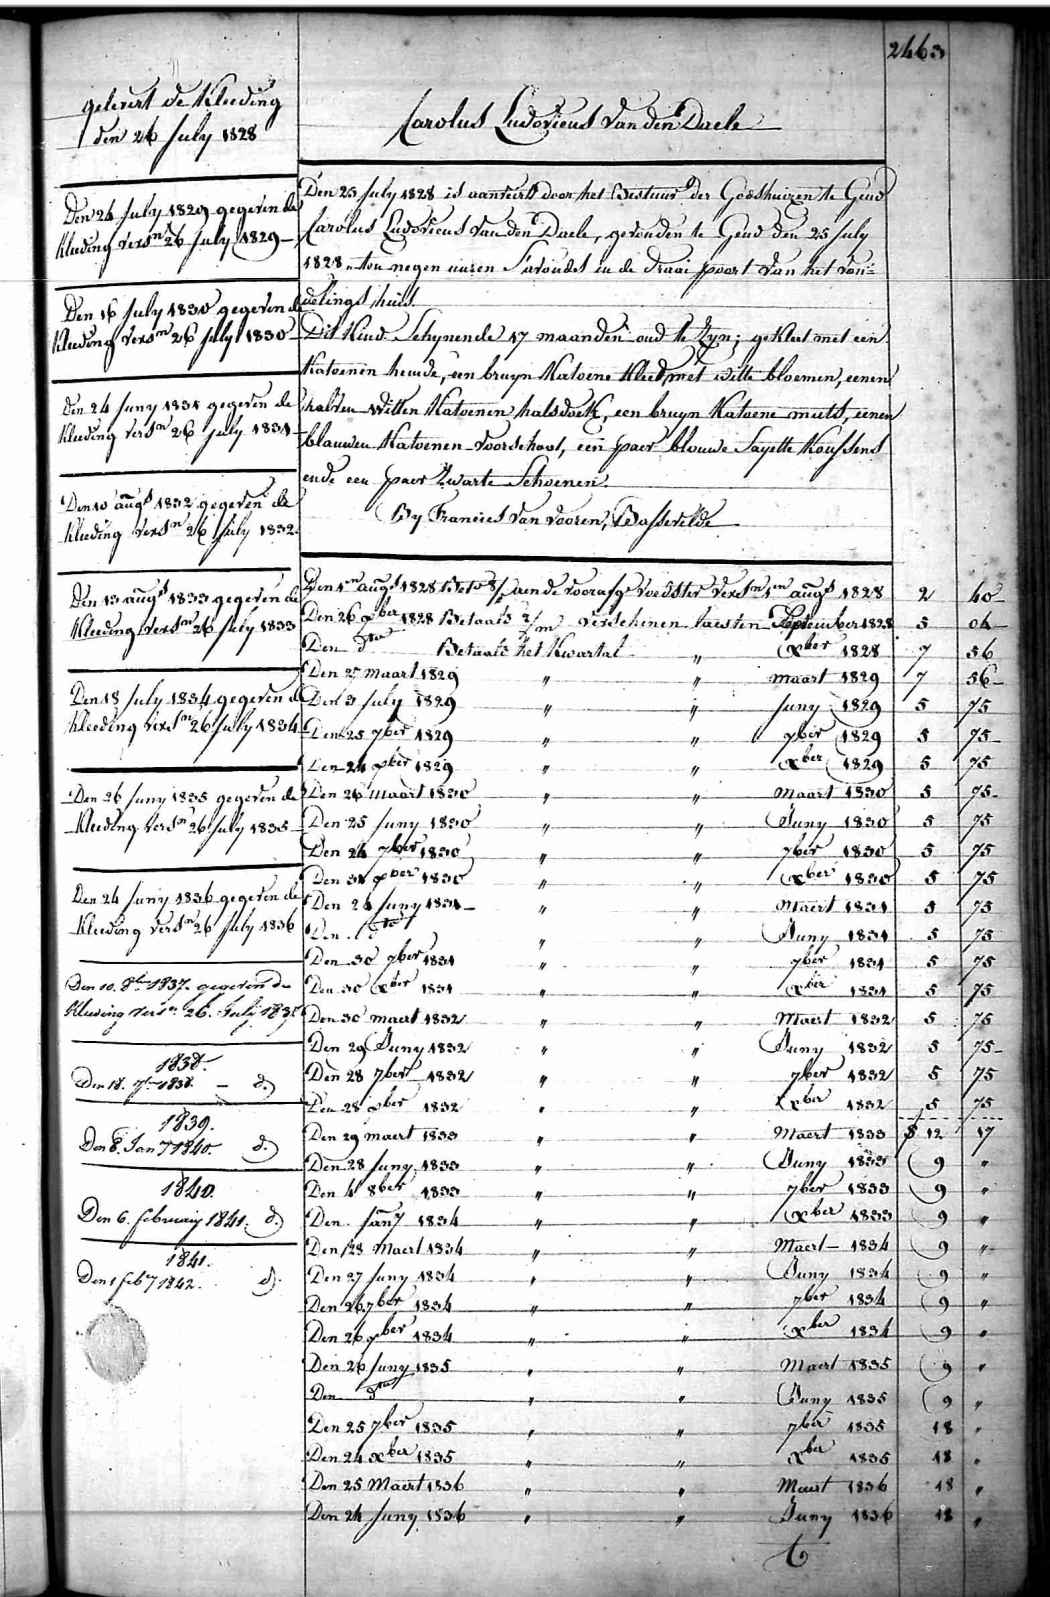 2463
gelevert de Kleeding
den 26 july 1828
Den 24 july 1829 gegeven de
kleding versn 26 july 1829
Den 16 july 1830 gegeven de
kleeding versn 26 july 1830
Den 24 juny 1831 gegeven de
kleding versn 26 july 1831
Den 10 augs 1832 gegeven de
kleeding versn 26 july 1832
Den 13 augs 1833 gegeven de
kleeding versn 26 july 1833
Den 18 july 1834 gegeven de
kleeding versn 26 july 1834
Den 26 juny 1835 gegeven de
kleeding versn 26 july 1835
Den 24 juny 1836 gegeven de
kleeding versn 26 july 1836
Den 10. 8br 1837. gegeven de
kleeding versn 26. July 1837
1838.
Den 18. 7br 1838. - d.)
1839.
Den 8. Jany 1840. d.)
1840.
Den 6. february 1841. d.)
1841.
Den 1 feby 1842. d.)
Carolus Ludovicus Van den Daele
Den 25 july 1828 is aanveird door het Bestuur der Godshuizen te Gend
Carolus Ludovicus Van den Daele, gevonden te Gend den 25 july
1828 ten negen uuren s'avonds in de draai poort van het von-
delings huis.
Dit Kind Schynende 17 maanden oud te zyn; gekleet met een
Katoenen hemde, een bruyn Katoene Kleed met witte bloemen, eenen
halven witten Katoenen halsdoek, een bruyn Katoene muts, eenen
blauwen Katoenen voorschoot, een paer blouwe Sayette Koussens
ende een paer Zwarte Schoenen.
By Francies Van Vooren, Bassevelde
Den 1en augs 1828 aen de voorafge voedster versn 1en augs 1828 2 40
Den 26 xber 1828 Betaalt 2/m verschenen laesten September 1828 5 04
Den dto Betaalt het Kwartal " xber 1828 7 56
Den 27 Maart 1829 " " maart 1829 7 56
Den 3 july 1829 " " juny 1829 5 75
Den 25 7ber 1829 " " 7ber 1829 5 75
Den 24 xber 1829 " " xber 1829 5 75
Den 26 maart 1830 " " Maart 1830 5 75
Den 25 juny 1830 " " Juny 1830 5 75
Den 24 7ber 1830 " " 7ber 1830 5 75
Den 31 xber 1830 " " xber 1830 5 75
Den 24 juny 1831 " " Maert 1831 5 75
Den dto " " Juny 1831 5 75
Den 30 7ber 1831 " " 7ber 1831 5 75
Den 30 xber 1831 " " xber 1831 5 75
Den 30 maert 1832 " " Maert 1832 5 75
Den 29 Juny 1832 " " Juny 1832 5 75
Den 28 7ber 1832 " " 7ber 1832 5 75
Den 28 xber 1832 " " xber 1832 5 75
Den 29 maert 1833 " " Maert 1833 12 17
Den 28 juny 1833 " " Juny 1833 9 "
Den 4 8ber 1833 " " 7ber 1833 9 "
Den jany 1834 " " xber 1833 9 "
Den 28 Maert 1834 " " Maert 1834 9 "
Den 27 juny 1834 " " Juny 1834 9 "
Den 26 7ber 1834 " " 7ber 1834 9 "
Den 26 xber 1834 " " xber 1834 9 "
Den 26 juny 1835 " " Maert 1835 9 "
Den dto " " Juny 1835 9 "
Den 25 7ber 1835 " " 7ber 1835 18 "
Den 24 xber 1835 " " xber 1835 18 "
Den 25 Maert 1836 " " Maert 1836 18 "
Den 24 juny 1836 " " Juny 1836 18 "